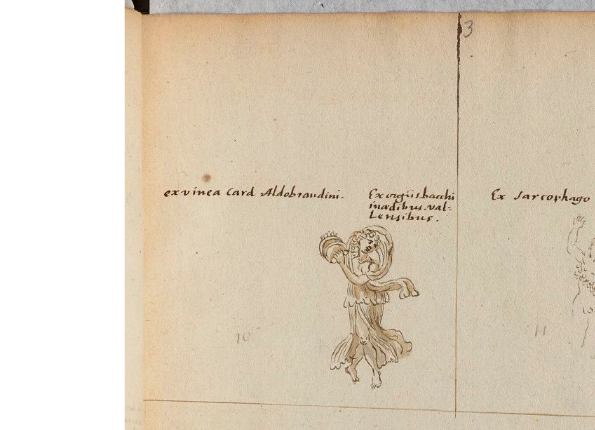 3
ex vinea Card Aldobrandini.
Ex orgiis bacchi
inædibus. val-
Lensibus.
Ex Sarcophago
10
11